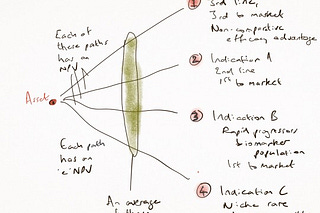 Each of
these paths
has an
NPV
Asset
Each path
has an
'e'NPV
An average
1
3rd line,
3rd to market
Non-comparative
efficacy advantage
2 Indication A
2nd line
1st to market
3 Indication B
Rapid progressors
biomarker
population
1st to market
4 Indication C
Niche rare